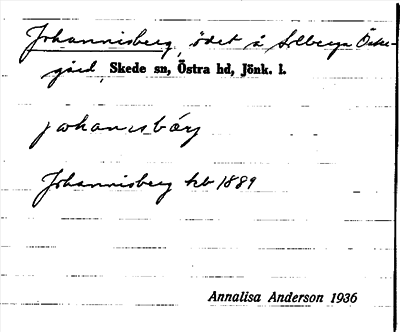 Johannisberg, ödet å Solberga Öster-
gård, Skede sn, Östra hd, Jönk. l.
johanısbärj
Johannisberg hb 1889
Annalisa Anderson 1936